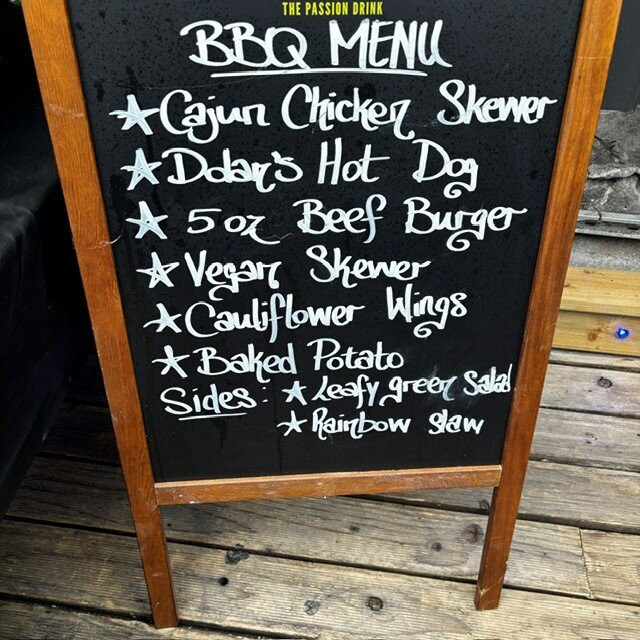 THE PASSION DRINK
BBQ MENU
Cajun Chicken Skewer
Dolan's Hot Dog
5oz Beef Burger
Vegan Skewer
Cauliflower Wings
Baked Potato
Sides: Leafy green Salad
Rainbow slaw